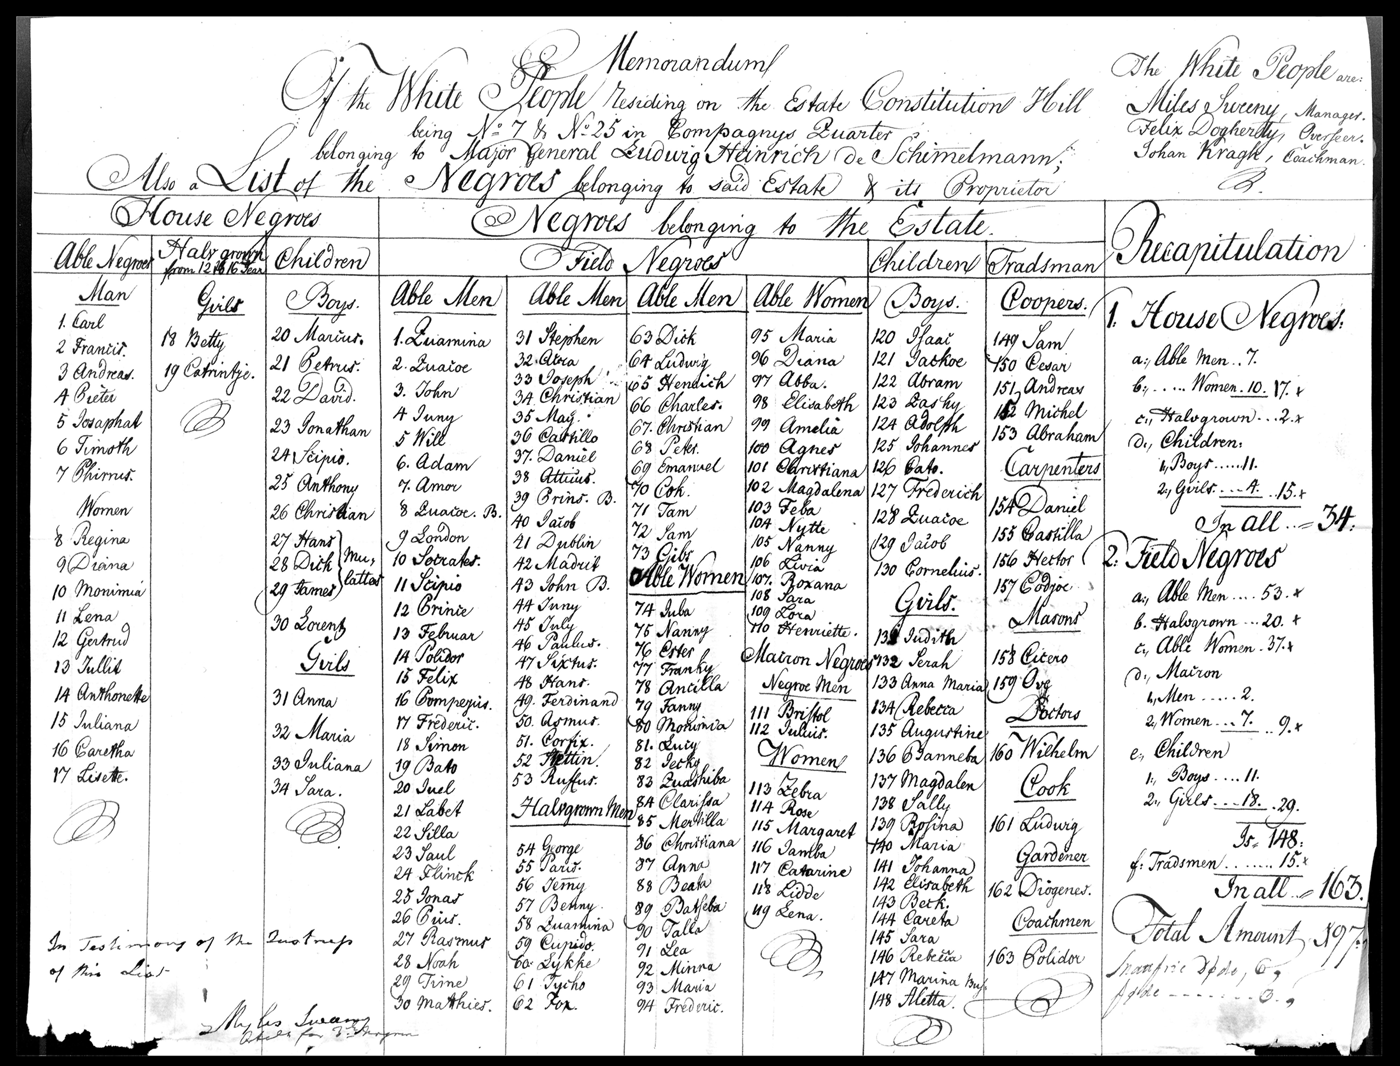 Memorandum
Of the White People residing on the Estate Constitution Hill
being No 7 & No 25 in Compagnys Quarter
belonging to Major General Ludwig Heinrich de Schimelmann;
Also a List of the Negroes belonging to said Estate & its Proprietor
The White People are:
Miles Sweeny, Manager.
Felix Dogherty, Overseer.
Johan Kragh, Coachman.
House Negroes
Able Negroes
Man
1. Carl
2 Francis.
3 Andreas.
4 Pieter
5 Josaphat
6 Timoth
7 Phirrus.
Women
8 Regina
9 Diana
10 Monimia
11 Lena
12 Gertrud
13 Jullit
14 Anthonette
15 Juliana
16 Caretha
17 Lisette.
Halvgrown
from 12 to 16 Year
Girls
18 Betty
19 Catrintje.
Children
Boys.
20 Marcus.
21 Petrus.
22 David.
23 Jonathan
24 Scipio.
25 Anthony
26 Christian
27 Hans
28 Dick
29 James
Mu,
lattos
30 Lorentz
Girls
31 Anna
32 Maria
33 Juliana
34 Sara.
Negroes belonging to the Estate.
Field Negroes
Able Men
1. Quamina
2. Quacoe
3. John
4 Juny
5 Will
6. Adam
7. Amor
8 Quacoe. B.
9 London
10 Socrates.
11 Scipio
12 Prince
13 Februar
14 Polidor
15 Felix
16 Pompejus.
17 Frederic.
18 Simon
19 Bato
20 Juel
21 Labet
22 Silla
23 Saul
24 Flinck
25 Jonas
26 Pius.
27 Rasmus
28 Noah
29 Trine
30 Mathies.
Able Men
31 Stephen
32 Acra
33 Joseph
34 Christian
35 May.
36 Castillo
37. Daniel
38 Attius.
39 Prins. B.
40 Jacob
41 Dublin
42 Madrit
43 John B.
44 Juny
45 July
46 Paulus.
47 Sixtus.
48 Hans.
49. Ferdinand
50. Asmus.
51. Corfix.
52 Stettin
53 Ruffus.
Halvgrown Men
54 George
55 Paris.
56 Jemy
57 Benny.
58 Quamina
59 Cupido.
60 Lykke
61 Tycho
62 Fox.
Able Men
63 Dick
64 Ludwig
65 Henrich
66 Charles.
67. Christian
68 Peter.
69 Emanuel
70 Cok.
71 Tam
72 Sam
73 Gibs
Able Women
74 Juba
75 Nanny
76 Ester
77 Franky
78 Ancilla
79 Fanny
80 Monimia
81. Lucy
82 Jecky
83 Quashiba
84 Clarissa
85 Mersilla
86 Christiana
87 Anna
88 Beata
89 Batseba
90 Talla
91 Lea
92 Minna
93 Maria
94 Frederic.
Able Women
95 Maria
96 Diana
97 Abba.
98 Elisabeth
99 Amelia
100 Agnes
101 Christiana
102 Magdalena
103 Feba
104 Nytte
105 Nanny
106 Livia
107. Roxana
108 Sara
109 Lora
110 Henriette.
Matron Negroes
Negroe Men
111 Bristol
112 Julius.
Women
113 Zebra
114 Rose
115 Margaret
116 Jamba
117 Catarine
118 Lidde
119 Lena.
Children
Boys.
120 Isaac
121 Jackoe
122 Abram
123 Zasky
124 Adolph
125 Johannes
126 Cato.
127 Frederich
128 Quacoe
129 Jacob
130 Cornelius.
Girls.
131 Judith
132 Serah
133 Anna Maria
134 Rebecca
135 Augustine
136 Banneba
137 Magdalen
138 Sally
139 Rosina
140 Maria
141 Johanna
142 Elisabeth
143 Beck.
144 Careta
145 Sara
146 Rebecca
147 Marina
148 Aletta.
Tradsman
Coopers.
149 Sam
150 Cesar
151 Andreas
152 Michel
153 Abraham
Carpenters
154 Daniel
155 Castilla
156 Hector
157 Codjoe
Masons
158 Cicero
159 Ove
Doctors
160 Wilhelm
Cook
161 Ludwig
Gardener
162 Diogenes.
Coachmen
163 Polidor
Recapitulation
1. House Negroes:
a., Able Men . 7.
b., ..... Women . 10. 17. x
c., Halvgrown ... 2. x
d., Children:
1, Boys ..... 11.
2., Girls .... 4. .. 15. x
In all .. = 34:
2: Field Negroes
a., Able Men .... 53. x
b. Halvgrown ... 20. x
c., Able Women . 37. x
d., Matron
1, Men ...... 2.
2, Women .... 7. .. 9. x
e., Children
1, Boys .... 11.
2., Girls .... 18. .. 29.
Is = 148:
f: Tradsmen ........ 15. x
In all .. = 163.
Total Amount 197:
In Testimony of the
of this List
Myles Sweany